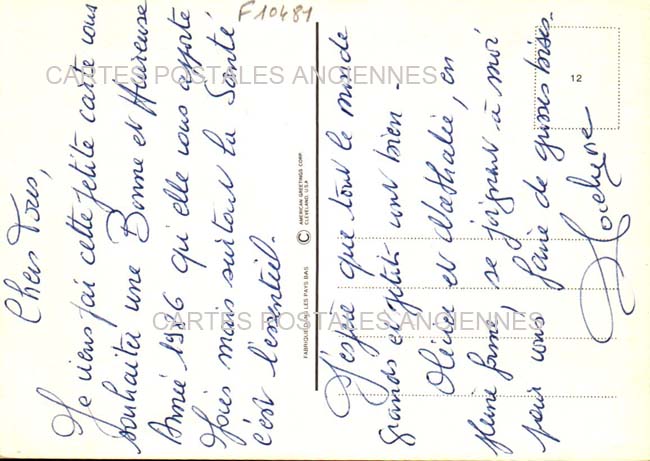 F10481
Chers Tous,
Je viens par cette petite carte vous
souhaiter une Bonne et Heureuse
Année 1986 qu'elle vous apporte
Joies mais surtout la Santé
c'est l'essentiel.
J'espère que tout le monde
grands et petits vont bien.
Olivier et Nathalie, en
pleine forme, se joignent à moi
pour vous faire de grosses bises.
12
© AMERICAN GREETINGS CORP.
CLEVELAND, USA
FABRIQUÉ DANS LES PAYS BAS
CARTES POSTALES ANCIENNES
CARTES POSTALES ANCIENNES